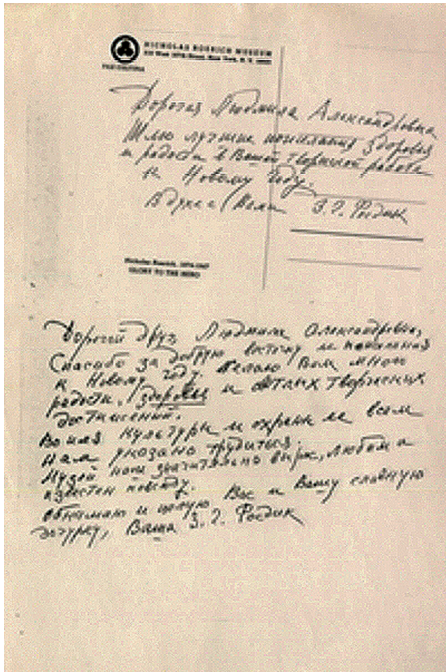 NICHOLAS ROERICH MUSEUM
319 West 107th Street, New York, N. Y. 10025
Дорогая Людмила Александровна
Шлю лучшие пожелания здоровья
и радости в Вашей творческой работе
к Новому Году.
Сердечно Ваша З. Г. Фосдик
Nicholas Roerich, 1874-1947
GLORY TO THE HERO
Дорогой друг Людмила Александровна,
Спасибо за добрую весточку и пожелания
к Новому году. Желаю Вам много
радости, здоровья и светлых творческих
достижений.
Во имя Культуры и охраны ее всем
нам указано трудиться.
Музей наш значительно вырос, любим и
известен повсюду.
Обнимаю и целую Вас и Вашу славную
дочурку, Ваша З. Г. Фосдик